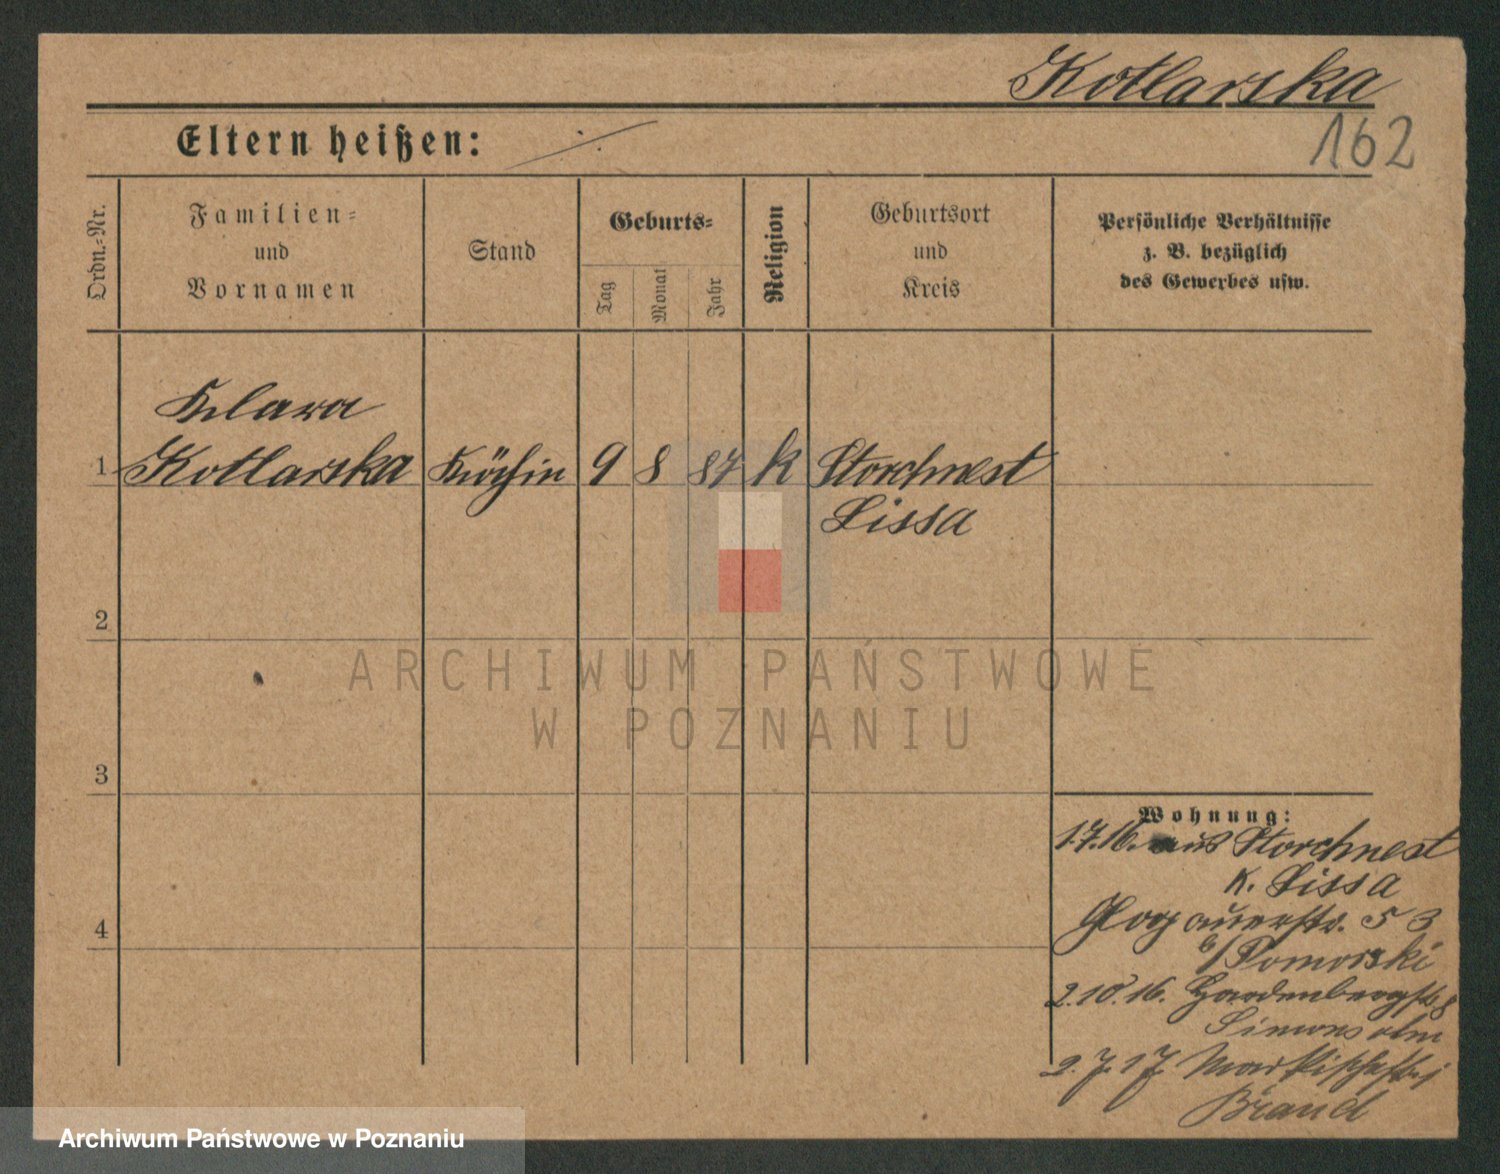 Kotlarska
162
Eltern heißen: ./.
Ordn.=Nr.
Familien=
und
Vornamen
Stand
Geburts=
Tag
Monat
Jahr
Religion
Geburtsort
und
Kreis
Persönliche Verhältnisse
z. B. bezüglich
des Gewerbes usw.
Klara
1 Kotlarska Köchin 9 8 87 k Storchnest
Lissa
2
3
4
Wohnung:
1.7.16. aus Storchnest
K. Lissa
Glogauerstr. 53
b/ Pomorski
2.10.16. Hardenbergstr. 8
Simonsohn
2.7.17. Markischestr. 1
Brand
ARCHIWUM PAŃSTWOWE
W POZNANIU
Archiwum Państwowe w Poznaniu